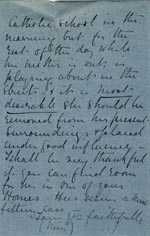 Catholic School in the
morning but for the
rest of the day while
his mother is out, is
playing about in the
streets, & it is most
desirable she should be
removed from his present
surroundings & placed
under good influence.
I shall be very thankful
if you can find room
for him in one of your
Homes. He is seemingly a most
fitting case
Yours faithfully